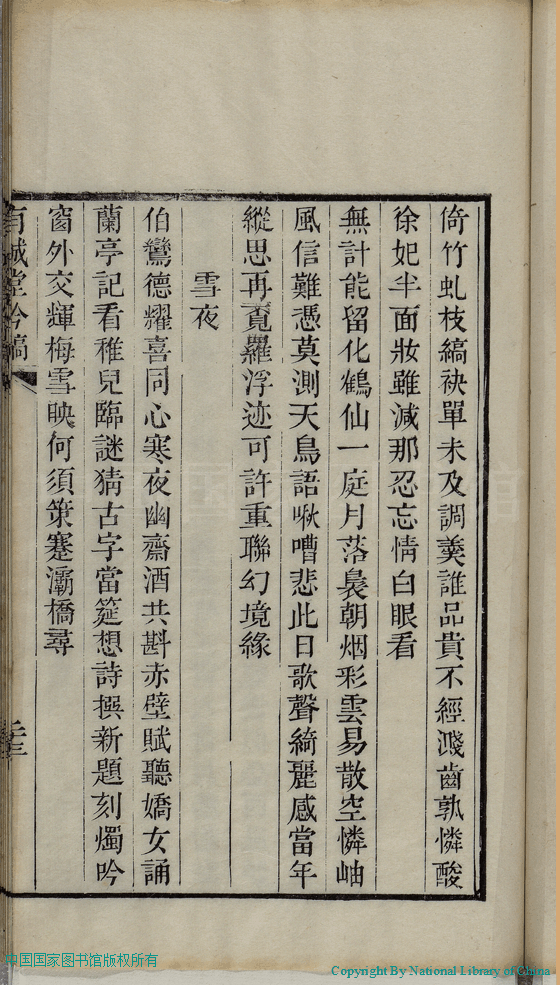 倚竹虬枝縞袂單未及調羹誰品貴不經濺齒孰憐酸
徐妃半面妝雖減那忍忘情白眼看
無計能留化鶴仙一庭月落裊朝烟彩雲易散空憐岫
風信難憑莫測天鳥語啾嘈悲此日歌聲綺麗感當年
縱思再覓羅浮迹可許重聯幻境緣
雪夜
伯鸞德耀喜同心寒夜幽齋酒共斟赤壁賦聽嬌女誦
蘭亭記看稚兒臨謎猜古字當筵想詩撰新題刻燭吟
窗外交輝梅雪映何須策蹇灞橋尋
有誠堂吟稿
中国国家图书馆版权所有
Copyright By National Library of China